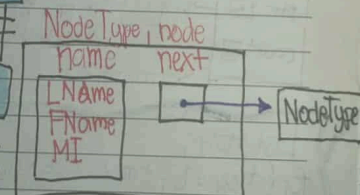 NodeType, node
name next
LNAme
FName
MI
NodeType